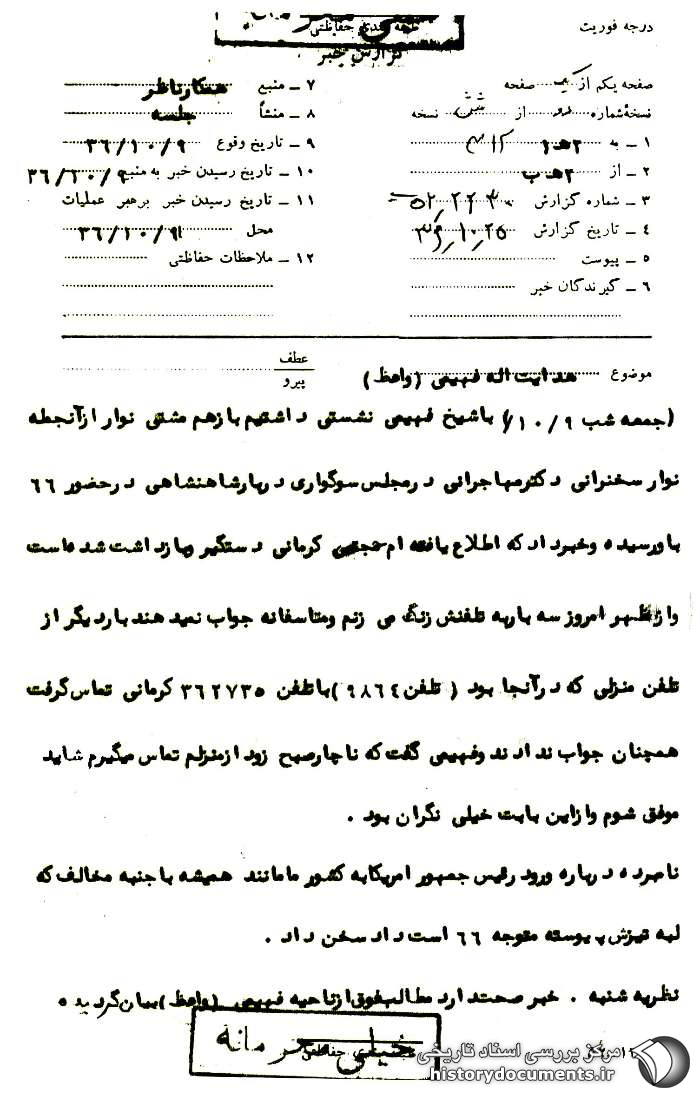 درجه فوریت
طبقه بندی حفاظتی
گزارش خبر
صفحه یکم از یک صفحه
نسخهٔ شماره دو از شش نسخه
۱ – به ۲هـ۱
۲ – از ۲هـ ب
۳ – شماره گزارش
۴ – تاریخ گزارش ۳۶/۱۰/۲۵
۵ – پیوست
۶ – گیرندگان خبر
۷ – منبع همکار ناظر
۸ – منشأ جلسه
۹ – تاریخ وقوع ۳۶/۱۰/۹
۱۰ – تاریخ رسیدن خبر به منبع ۳۶/۱۰/۹
۱۱ – تاریخ رسیدن خبر برهبر عملیات
محل ۳۶/۱۰/۹
۱۲ – ملاحظات حفاظتی
موضوع هدایت اله فهیمی (واعظ)
عطف
پیرو
(جمعه شب ۱۰/۹) باشیخ فهیمی نشستی داشتیم بازهم مشتی نوار ازآنجمله
نوار سخنرانی دکترمهاجرانی درمجلس سوگواری دربارشاهنشاهی درحضور ۶۶
باورسیده وخبرداد که اطلاع یافته ام حجتی کرمانی دستگیر وبازداشت شده است
وازظهر امروز سه باربه تلفنش زنگ می زنم ومتاسفانه جواب نمیدهند باردیگر از
تلفن منزلی که درآنجا بود (تلفن ۹۸۶۴) باتلفن ۳۶۲۷۳۵ کرمانی تماس گرفت
همچنان جواب ندادند وفهیمی گفت که ناچارصبح زود ازمنزلم تماس میگیرم شاید
موفق شوم وازاین بابت خیلی نگران بود .
نامبرده درباره ورود رئیس جمهور امریکابه کشور مامانند همیشه باجنبه مخالف که
لبه تیزش پیوسته متوجه ۶۶ است داد سخن داد .
نظریه شنبه . خبر صحت دارد مطالب فوق ازناحیه فهیمی (واعظ) بیان گردیده
خیلی محرمانه
حفاظتی
مرکز بررسی اسناد تاریخی
historydocuments.ir